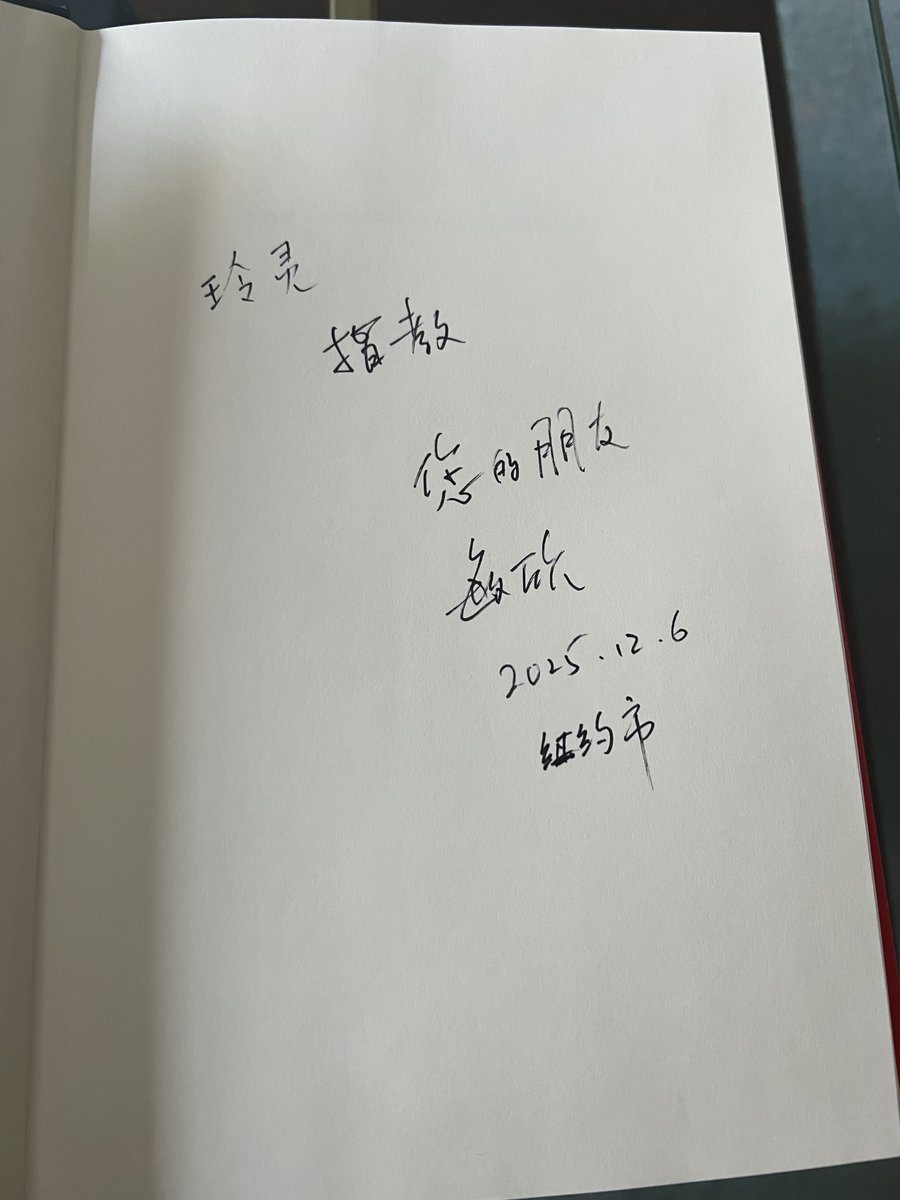 玲灵
指教
您的朋友
2025.12.6
纽约市